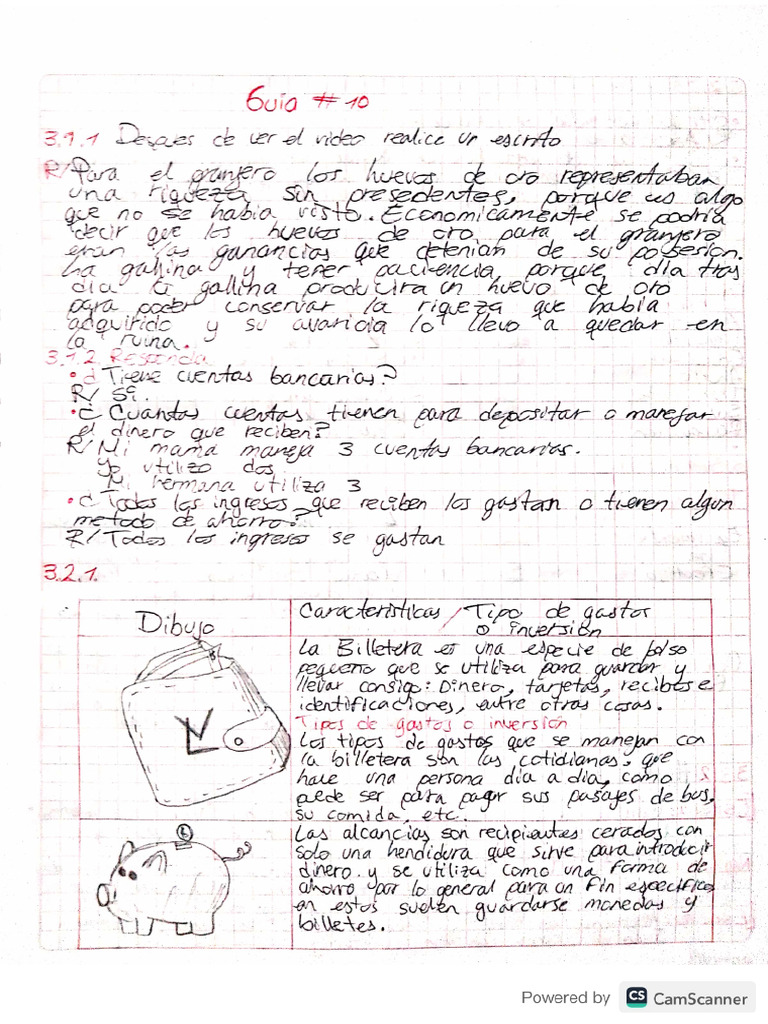 Guia # 10
3.1.1 Despues de ver el video realice un escrito
R/Para el granjero los huevos de oro representaban
una riqueza sin presedentes, porque es algo
que no se habia visto. Economicamente se podria
decir que los huevos de oro para el granjero
eran las ganancias que detenian de su posesion.
La gallina y tener paciencia, porque dia tras
dia la gallina producira un huevo de oro
para poder conservar la riqueza que habia
adquirido y su avaricia lo llevo a quedar en
la ruina.
3.1.2 Responda
• ¿Tiene cuentas bancarias?
R/ Si.
• ¿ Cuantas cuentas tienen para depositar o manejar
el dinero que reciben?
R/ Mi mama maneja 3 cuentas bancarias.
Yo utilizo dos
Mi hermana utiliza 3
• ¿ Todos los ingresos que reciben los gastan o tienen algun
metodo de ahorro?
R/ Todos los ingresos se gastan
3.2.1.
Dibujo
Caracteristicas / Tipo de gastos
o inversión
La Billetera es una especie de bolso
pequeño que se utiliza para guardar y
llevar consigo: Dinero, tarjetas, recibos e
identificaciones, entre otras cosas.
Tipos de gastos o inversión
Los tipos de gastos que se manejan con
la billetera son las cotidianas, que
hace una persona dia a dia, como
puede ser para pagar sus pasajes de bus,
su comida, etc.
Las alcancias son recipientes cerados con
solo una hendidura que sirve para introducir
dinero. y se utiliza como una forma de
ahorro por lo general para un fin especifico
en estos suelen guardarse monedas y
billetes.
Powered by CS CamScanner